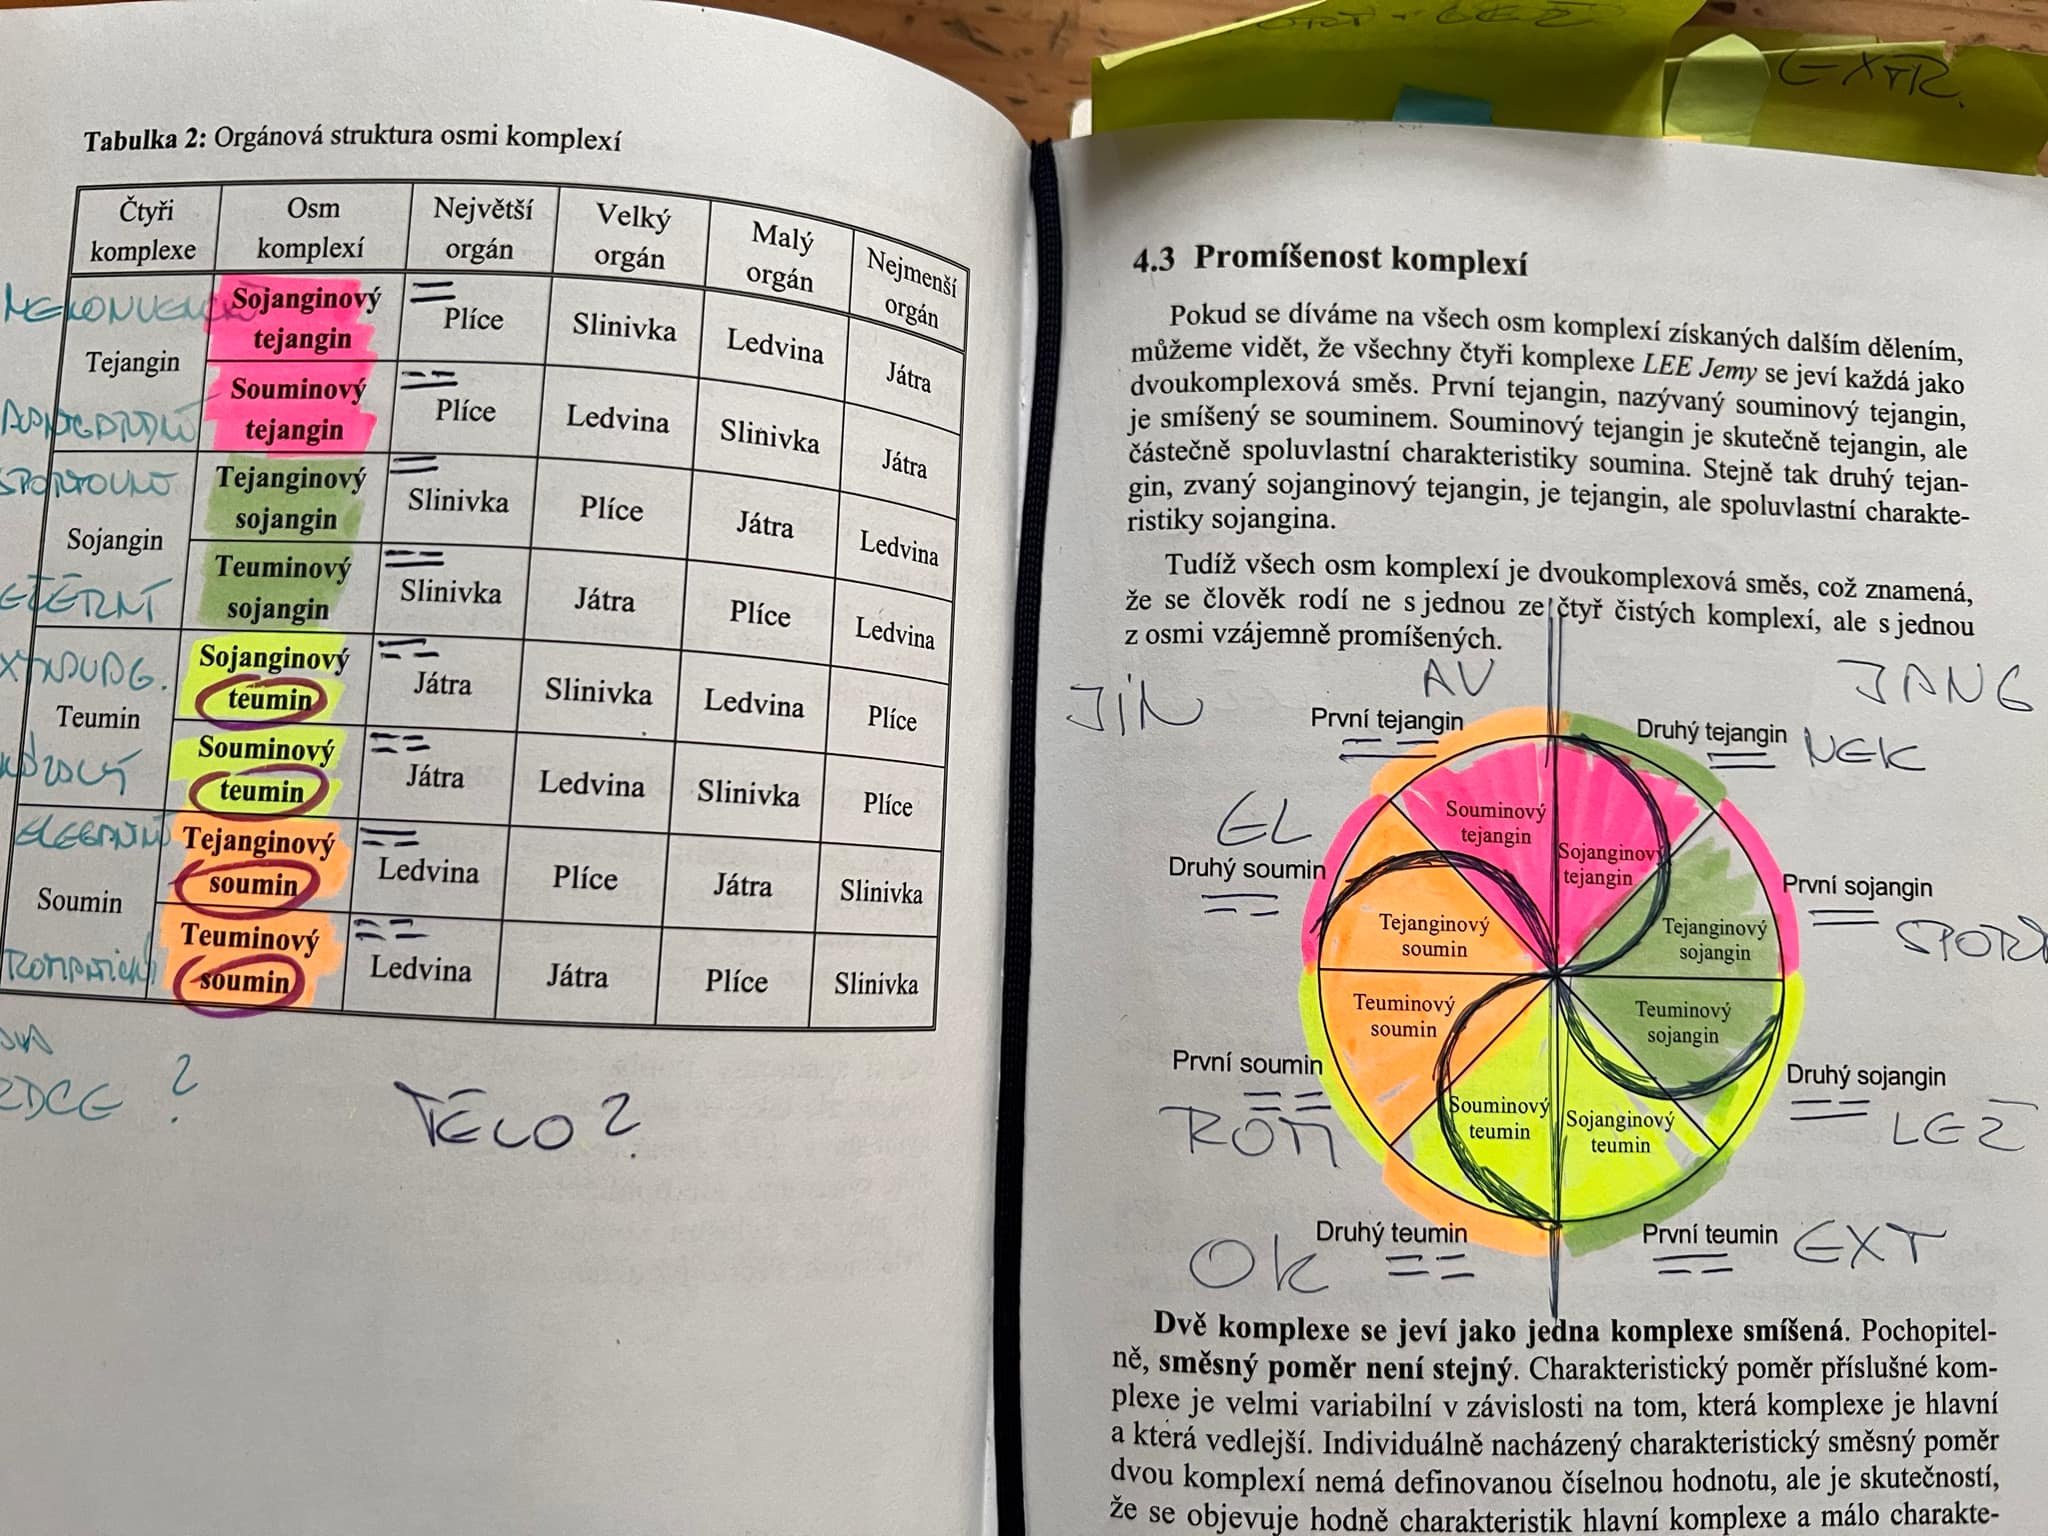 Tabulka 2: Orgánová struktura osmi komplexí
Čtyři komplexe | Osm komplexí | Největší orgán | Velký orgán | Malý orgán | Nejmenší orgán
Tejangin | Sojanginový tejangin | Plíce | Slinivka | Ledvina | Játra
Souminový tejangin | Plíce | Ledvina | Slinivka | Játra
SPORTOVNÍ
Sojangin | Tejanginový sojangin | Slinivka | Plíce | Játra | Ledvina
Teuminový sojangin | Slinivka | Játra | Plíce | Ledvina
Teumin | Sojanginový teumin | Játra | Slinivka | Ledvina | Plíce
Souminový teumin | Játra | Ledvina | Slinivka | Plíce
ELEGANTNÍ
Soumin | Tejanginový soumin | Ledvina | Plíce | Játra | Slinivka
Teuminový soumin | Ledvina | Játra | Plíce | Slinivka
TĚLO?
EXTR.
4.3 Promíšenost komplexí
Pokud se díváme na všech osm komplexí získaných dalším dělením,
můžeme vidět, že všechny čtyři komplexe LEE Jemy se jeví každá jako
dvoukomplexová směs. První tejangin, nazývaný souminový tejangin,
je smíšený se souminem. Souminový tejangin je skutečně tejangin, ale
částečně spoluvlastní charakteristiky soumina. Stejně tak druhý tejan-
gin, zvaný sojanginový tejangin, je tejangin, ale spoluvlastní charakte-
ristiky sojangina.
Tudíž všech osm komplexí je dvoukomplexová směs, což znamená,
že se člověk rodí ne s jednou ze čtyř čistých komplexí, ale s jednou
z osmi vzájemně promíšených.
JIN
AV
JANG
První tejangin
Druhý tejangin
NEK
EL
Druhý soumin
První sojangin
SPORT
Souminový
tejangin
Sojanginový
tejangin
Tejanginový
soumin
Tejanginový
sojangin
Teuminový
soumin
Teuminový
sojangin
První soumin
Druhý sojangin
ROM
LEŽ
Souminový
teumin
Sojanginový
teumin
OK
Druhý teumin
První teumin
EXT
Dvě komplexe se jeví jako jedna komplexe smíšená. Pochopitel-
ně, směsný poměr není stejný. Charakteristický poměr příslušné kom-
plexe je velmi variabilní v závislosti na tom, která komplexe je hlavní
a která vedlejší. Individuálně nacházený charakteristický směsný poměr
dvou komplexí nemá definovanou číselnou hodnotu, ale je skutečností,
že se objevuje hodně charakteristik hlavní komplexe a málo charakte-